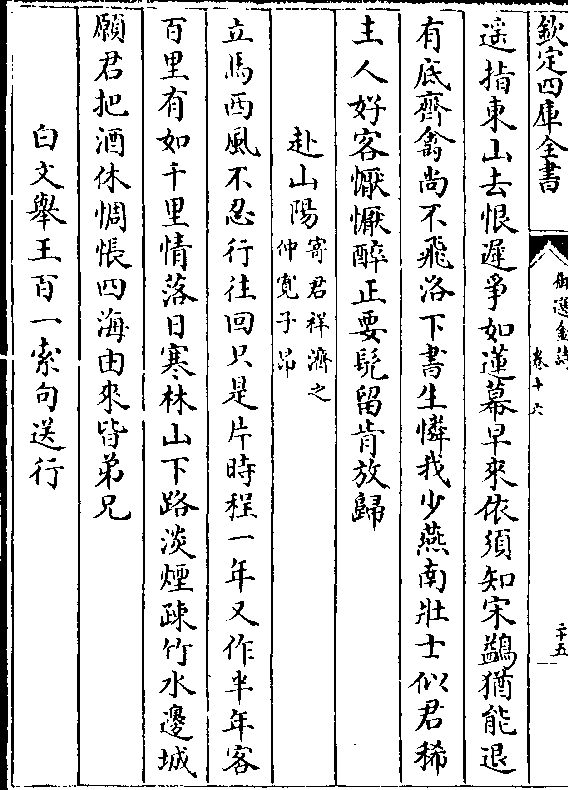 欽定四庫全書
御選金詩
卷十六
二十五
遥指東山去恨遲爭如蓮幕早來依須知宋鷁猶能退
有底齊禽尚不飛洛下書生憐我少燕南壯士似君稀
主人好客懨懨醉正要髠留肯放歸
赴山陽寄君祥濟之
仲寛子昂
立馬西風不忍行往回只是片時程一年又作半年客
百里有如千里情落日寒林山下路淡煙疎竹水邊城
願君把酒休惆悵四海由來皆弟兄
白文舉王百一索句送行